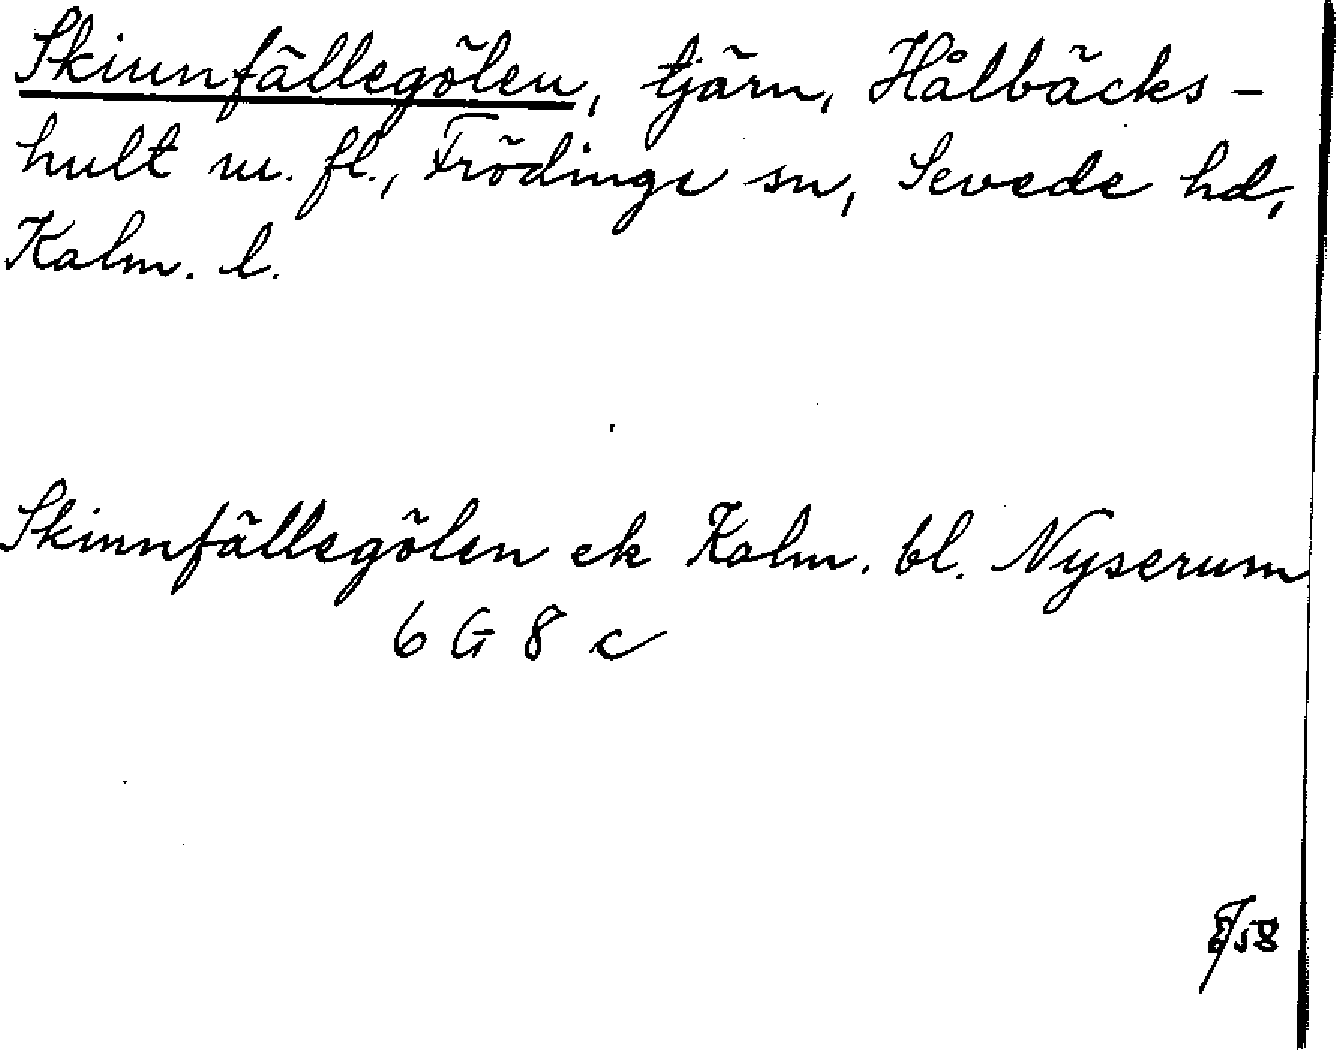 Skinnfällegölen, tjärn, Hålbäcks-
hult m. fl., Frödinge sn, Sevede hd,
Kalm. l.
Skinnfällegölen ek Kalm. bl. Nyserum
6 G 8 c
58